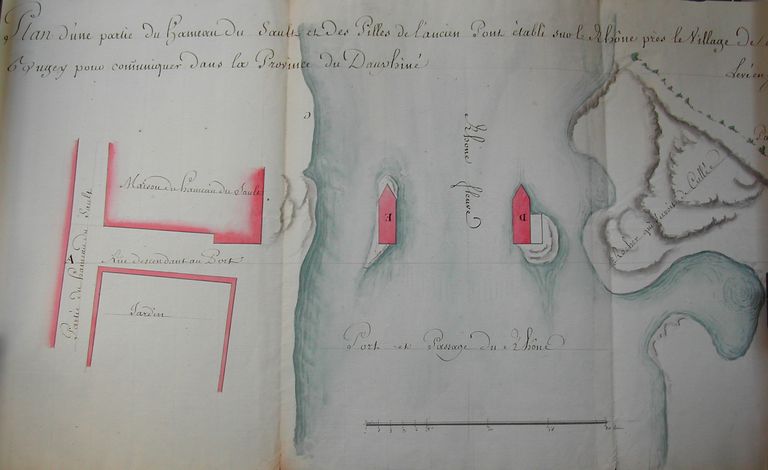 Plan d'une partie du hameau du Sault et des Pilles de l'ancien Pont établi sur le Rhône près le Village de
Bugey pour com̃uniquer dans la Province du Dauphiné
Levé en
Rhône fleuve
Maison du hameau du Sault
Partie du hameau du Sault
A
Rue descendant au Port
Jardin
E
D
Rocher qui servoit de Cullée
Port et Passage du Rhône